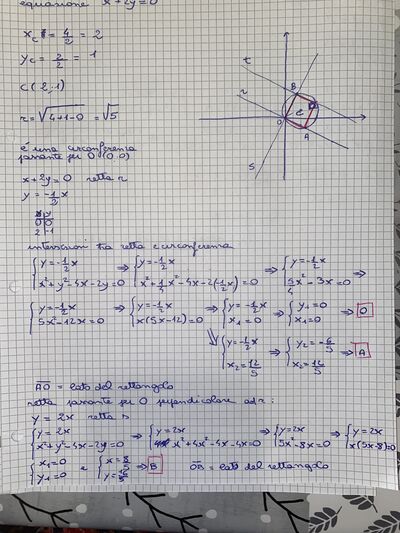 equazione x+2y=0
xc = 4/2 = 2
yc = 2/2 = 1
C(2;1)
r = √4+1-0 = √5
è una circonferenza
passante per O (0;0)
x+2y=0 retta r
y = -1/2 x
x | y
0 | 0
2 | -1
t
r
s
B
O
C
A
intersezioni tra retta e circonferenza
{y=-1/2x ⇒ {y=-1/2x ⇒ {y=-1/2x ⇒
{x²+y²-4x-2y=0 {x²+1/4x²-4x-2(-1/2x)=0 {5/4x²-3x=0
{y=-1/2x ⇒ {y=-1/2x ⇒ {y=-1/2x ⇒ {y1=0 ⇒ O
{5x²-12x=0 {x(5x-12)=0 {x1=0 {x1=0
⇒ {y=-1/2x ⇒ {y2=-6/5 ⇒ A
{x2=12/5 {x2=12/5
AO = lato del rettangolo
retta passante per O perpendicolare ad r:
y = 2x retta s
{y=2x ⇒ {y=2x ⇒ {y=2x ⇒ {y=2x
{x²+y²-4x-2y=0 x²+4x²-4x-4x=0 {5x²-8x=0 {x(5x-8)=0
{x1=0 e {x=8/5 ⇒ B OB = lato del rettangolo
{y1=0